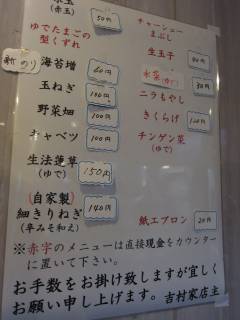 (赤玉) 50円
ゆでたまごの
型くずれ
のり
海苔増 60円
玉ねぎ 100円
野菜畑 100円
キャベツ 100円
生法蓮草
(ゆで) 150円
(自家製)
細きりねぎ
(辛みそ和え) 140円
チャーシュー
まぶし
生玉子
(ゆで) 30円
ニラもやし
きくらげ
チンゲン菜
(ゆで)
紙エプロン 20円
※赤字のメニューは直接現金をカウンター
に置いて下さい。
お手数をお掛け致しますが宜しく
お願い申し上げます。吉村家店主